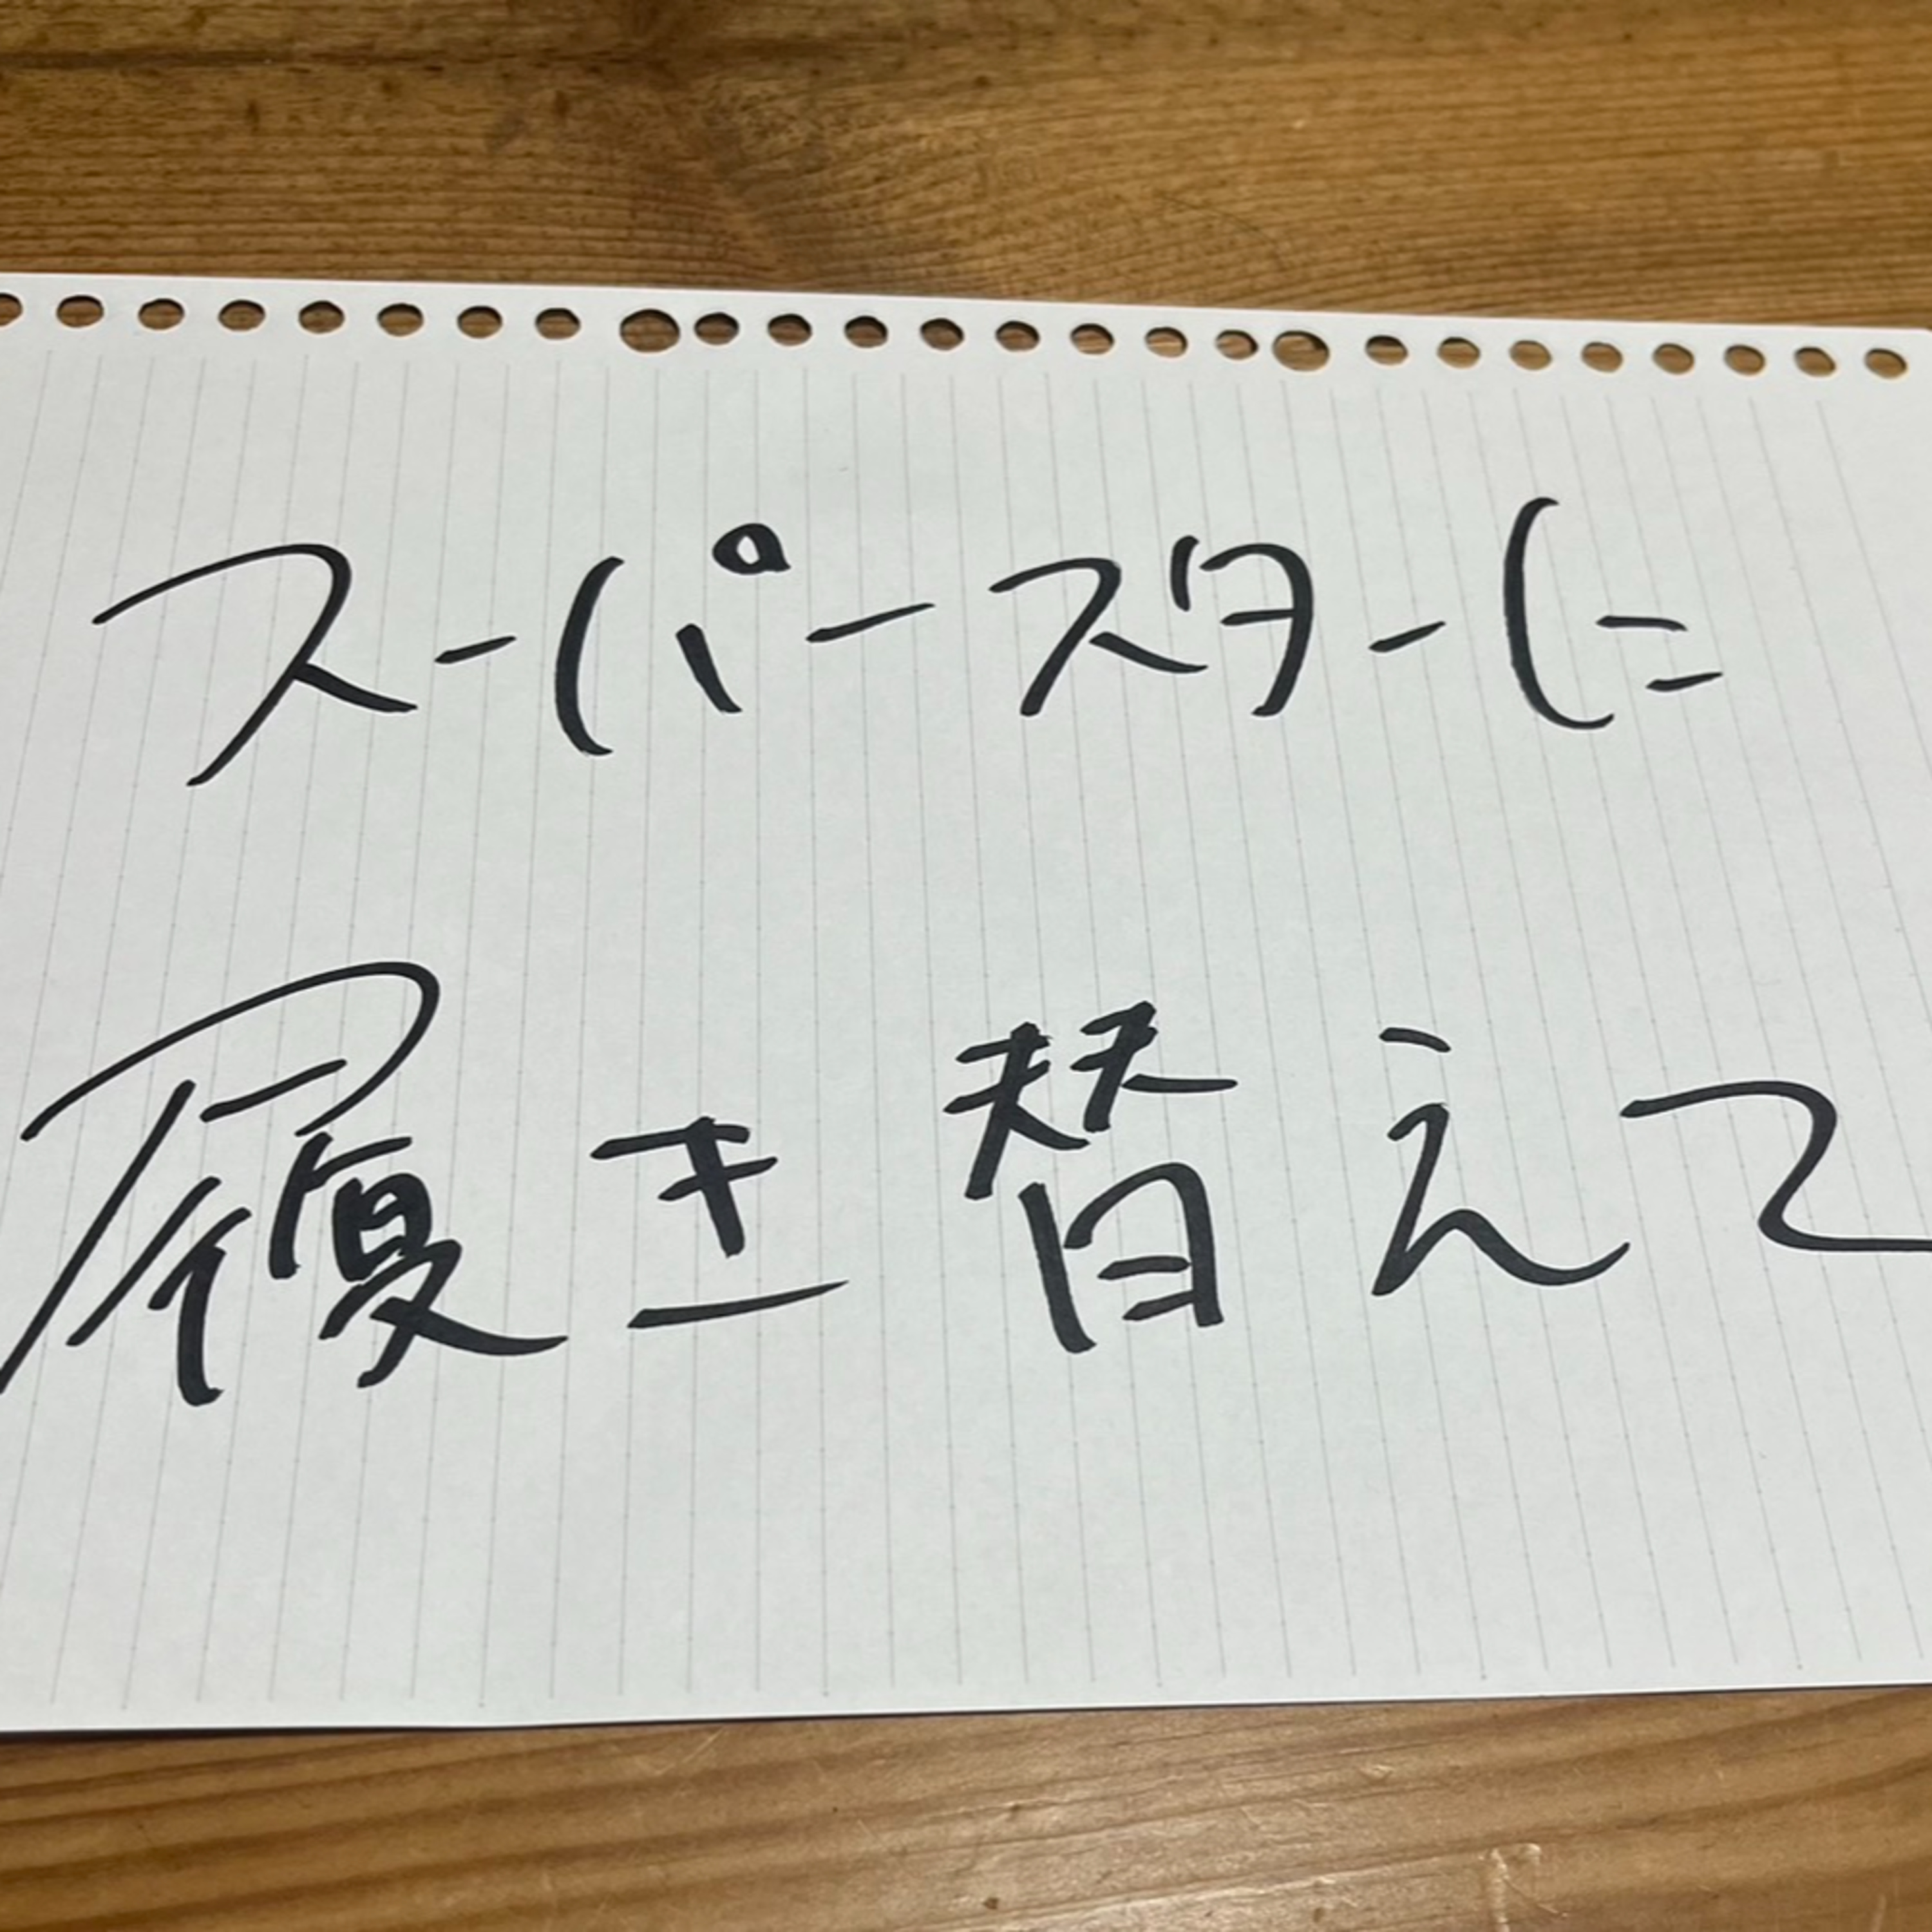 スーパースターに
履き替えて